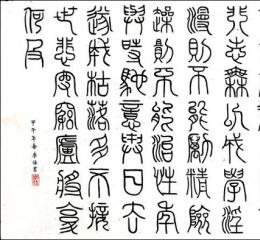 非志無以成學淫
漫則不能勵精險
躁則不能治性年
與時馳意與日去
遂成枯落多不接
世悲守窮廬將復
何及
甲午年